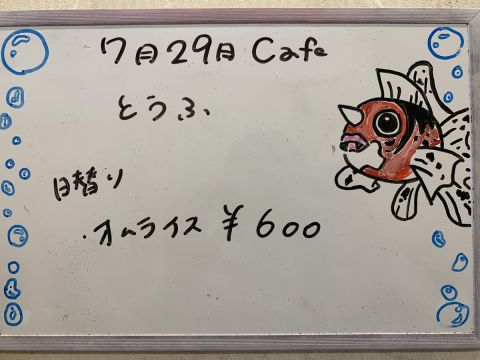 7月29日 Cafe
とうふ
日替り
・オムライス ¥600